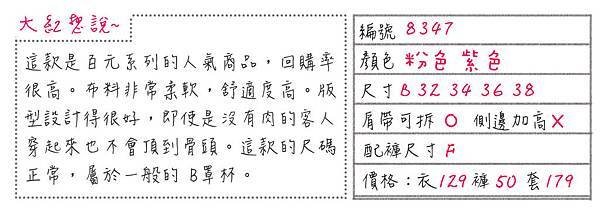 大紅想說~
這款是百元系列的人氣商品，回購率
很高。布料非常柔軟，舒適度高。版
型設計得很好，即使是沒有肉的客人
穿起來也不會頂到骨頭。這款的尺碼
正常，屬於一般的B罩杯。
編號 8347
顏色 粉色 紫色
尺寸 B 32 34 36 38
肩帶可拆 O 側邊加高 X
配褲尺寸 F
價格：衣129 褲50 套179